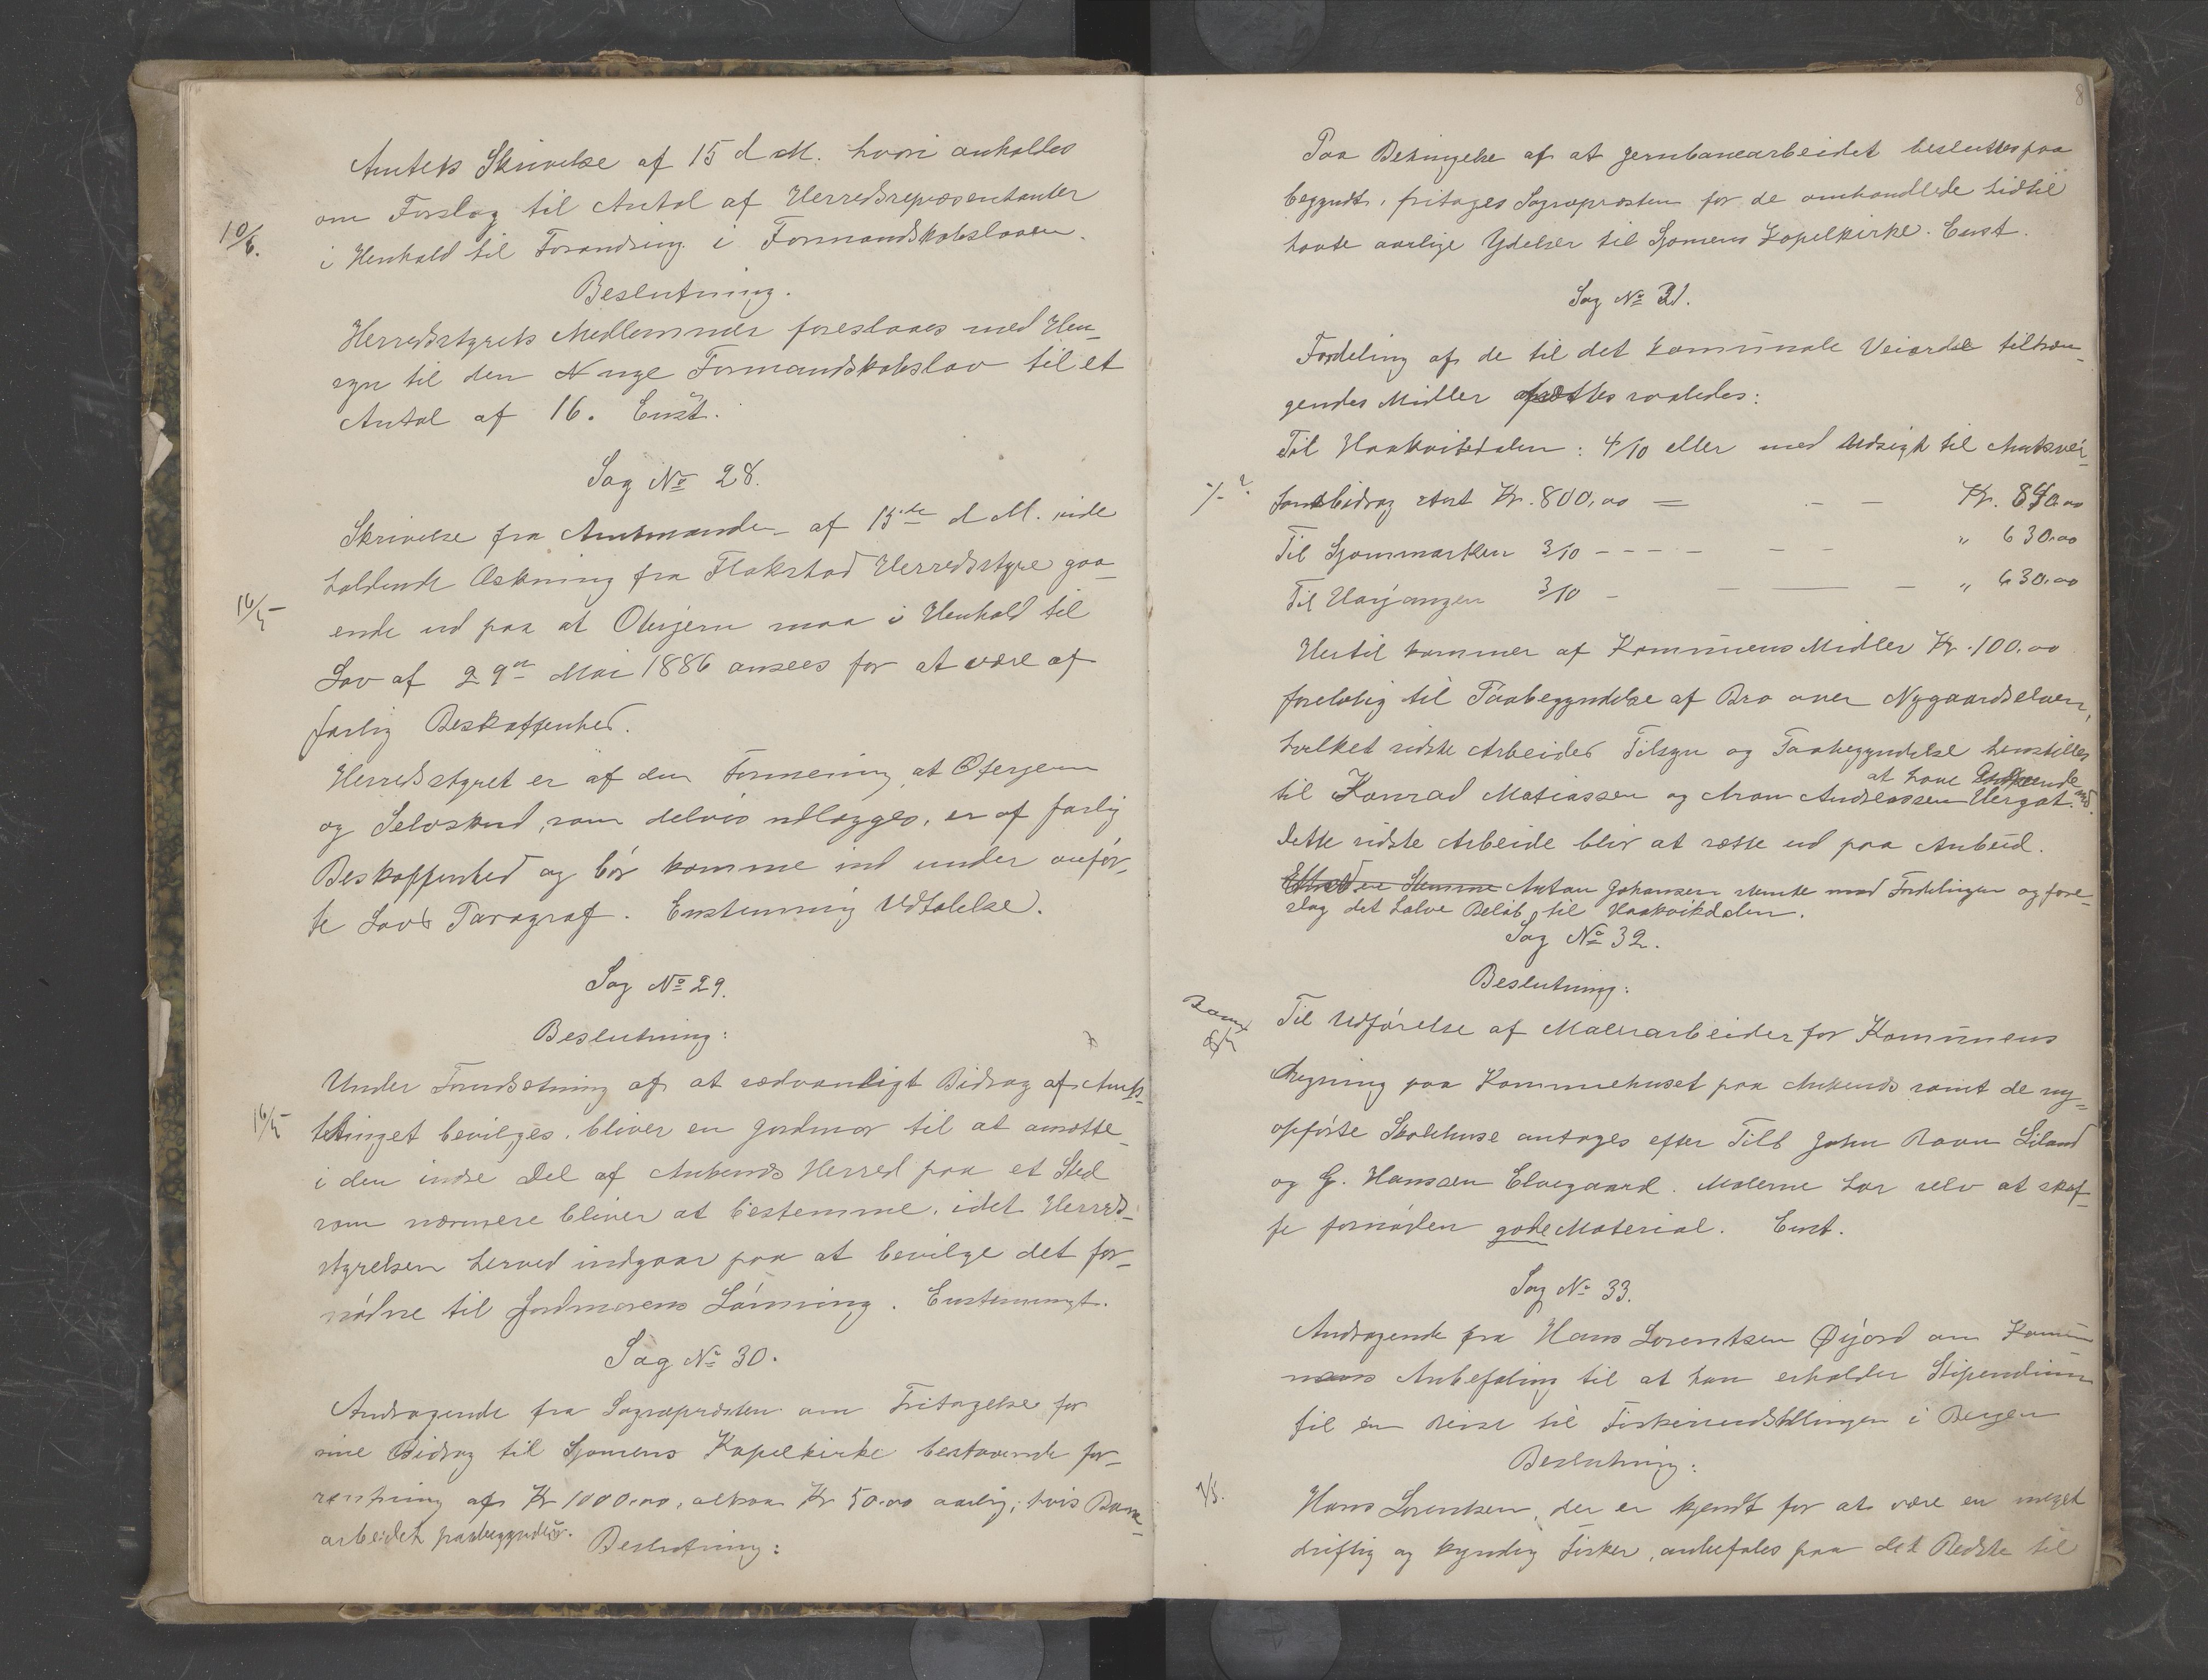 Amtets Skrivelse af 15 d M. hvori anholdes
om Forslag til Antal af Herredsrepresentanter
10/6.
i Henhold til Forandring i Formandskabsloven.
Beslutning.
Herredsstyrets Medlemmer foreslaaes med Hen-
syn til den Nye Formandskabslov til et
Antal af 16. Enst.
Sag No 28.
Skrivelse fra Amtmanden af 15de d M. inde
holdende Æskning fra Flakstad Herredsstyre gaa-
16/5
ende ud paa at Oterjern maa i Henhold til
Lov af 29de Mai 1886 ansees for at være af
farlig Beskaffenhed.
Herredsstyret er af den Formening at Oterjern
og Selvskud, som delvis udlægges, er af farlig
Beskaffenhed og bør komme ind under anfør-
te Lovs Paragraf. Enstemmig Udtalelse.
Sag No 29.
Beslutning:
Under Forudsetning af at sædvanligt Bidrag af Amts-
16/5
thinget bevilges, bliver en Jordmor til at ansætte
i den indre Del af Ankenes Herred paa et Sted
som nærmere bliver at bestemme, idet Herreds-
styrelsen herved indgaar paa at bevilge det for-
nødne til Jordmorens Lønning. Enstemmigt.
Sag No 30.
Andragende fra Sognepræsten om Fritagelse for
sine Bidrag til Sjomens Kapelkirke bestaaende for-
rentning af Kr 1000.00, altsaa Kr 50.00 aarlig, hvis Bane-
arbeidet paabegyndes.
Beslutning:
8
Paa Betingelse af at Jernbanearbeidet besluttes paa
begyndt, fritages Sognepræsten for de omhandlede hidtil
havte aarlige Ydelser til Sjomens Kapelkirke. Enst.
Sag No 31.
Fordeling af de til det komunale Veiarbde tilhæn-
gendes Midler ansættes saaledes:
Til Haakvikdalen: 4/10 eller med Udsigt til Amtsvei-
fondbidrag stort Kr. 800,00 = - - Kr. 840.00
Til Sjommarken 3/10 - - - - - - " 630.00
Til Herjangen 3/10 - - - - " 630.00
Hertil kommer af Komunens Midler Kr. 100.00
foreløbig til Paabegyndelse af Bro over Nygaardselven,
hvilket sidste Arbeides Tilsyn og Paabegyndelse henstilles
at have
til Konrad Matiassen og Aron Andreassen Hergot.
Dette sidste Arbeide blir at sætte ud paa Anbud.
Anton Johansen stemte mod Fordelingen og fore-
slog det halve Beløb til Haakvikdalen.
Sag No 32.
Beslutning:
Til Udførelse af Malerarbeider for Komunens
Regning paa Kommuehuset paa Ankenes samt de ny-
opførte Skolehuse antages efter Tilb John Ravn Liland
og G. Hanssen Elvegaard. Malerne har selv at skaf-
fe fornøden gode Material. Enst.
Sag No 33.
Andragende fra Hans Lorentsen Øijord om Komu-
nens Anbefaling til at han erholder Stipendium
til en Reise til Fiskeriudstillingen i Bergen
Beslutning:
Hans Lorentsen, der er kjendt for at være en meget
driftig og kyndig Fisker, anbefales paa det Bedste til